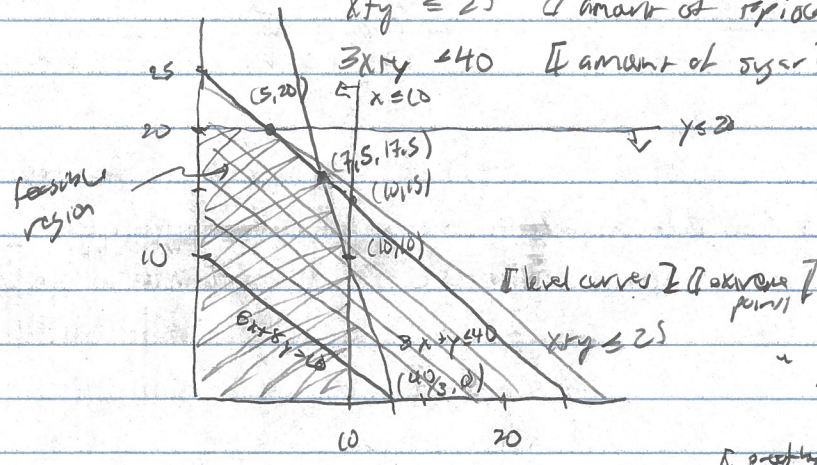 x+y ≤ 25 [ amount of
3x+y ≤ 40 [ amount of sugar ]
25
(5,20)
x ≤ 10
20
y ≤ 20
(7.5, 17.5)
feasible
region
(10,15)
10
(10,10)
[ level curves ] [ extreme ]
points
x+y ≤ 25
x+y ≤ 40
(40/3, 0)
10
20